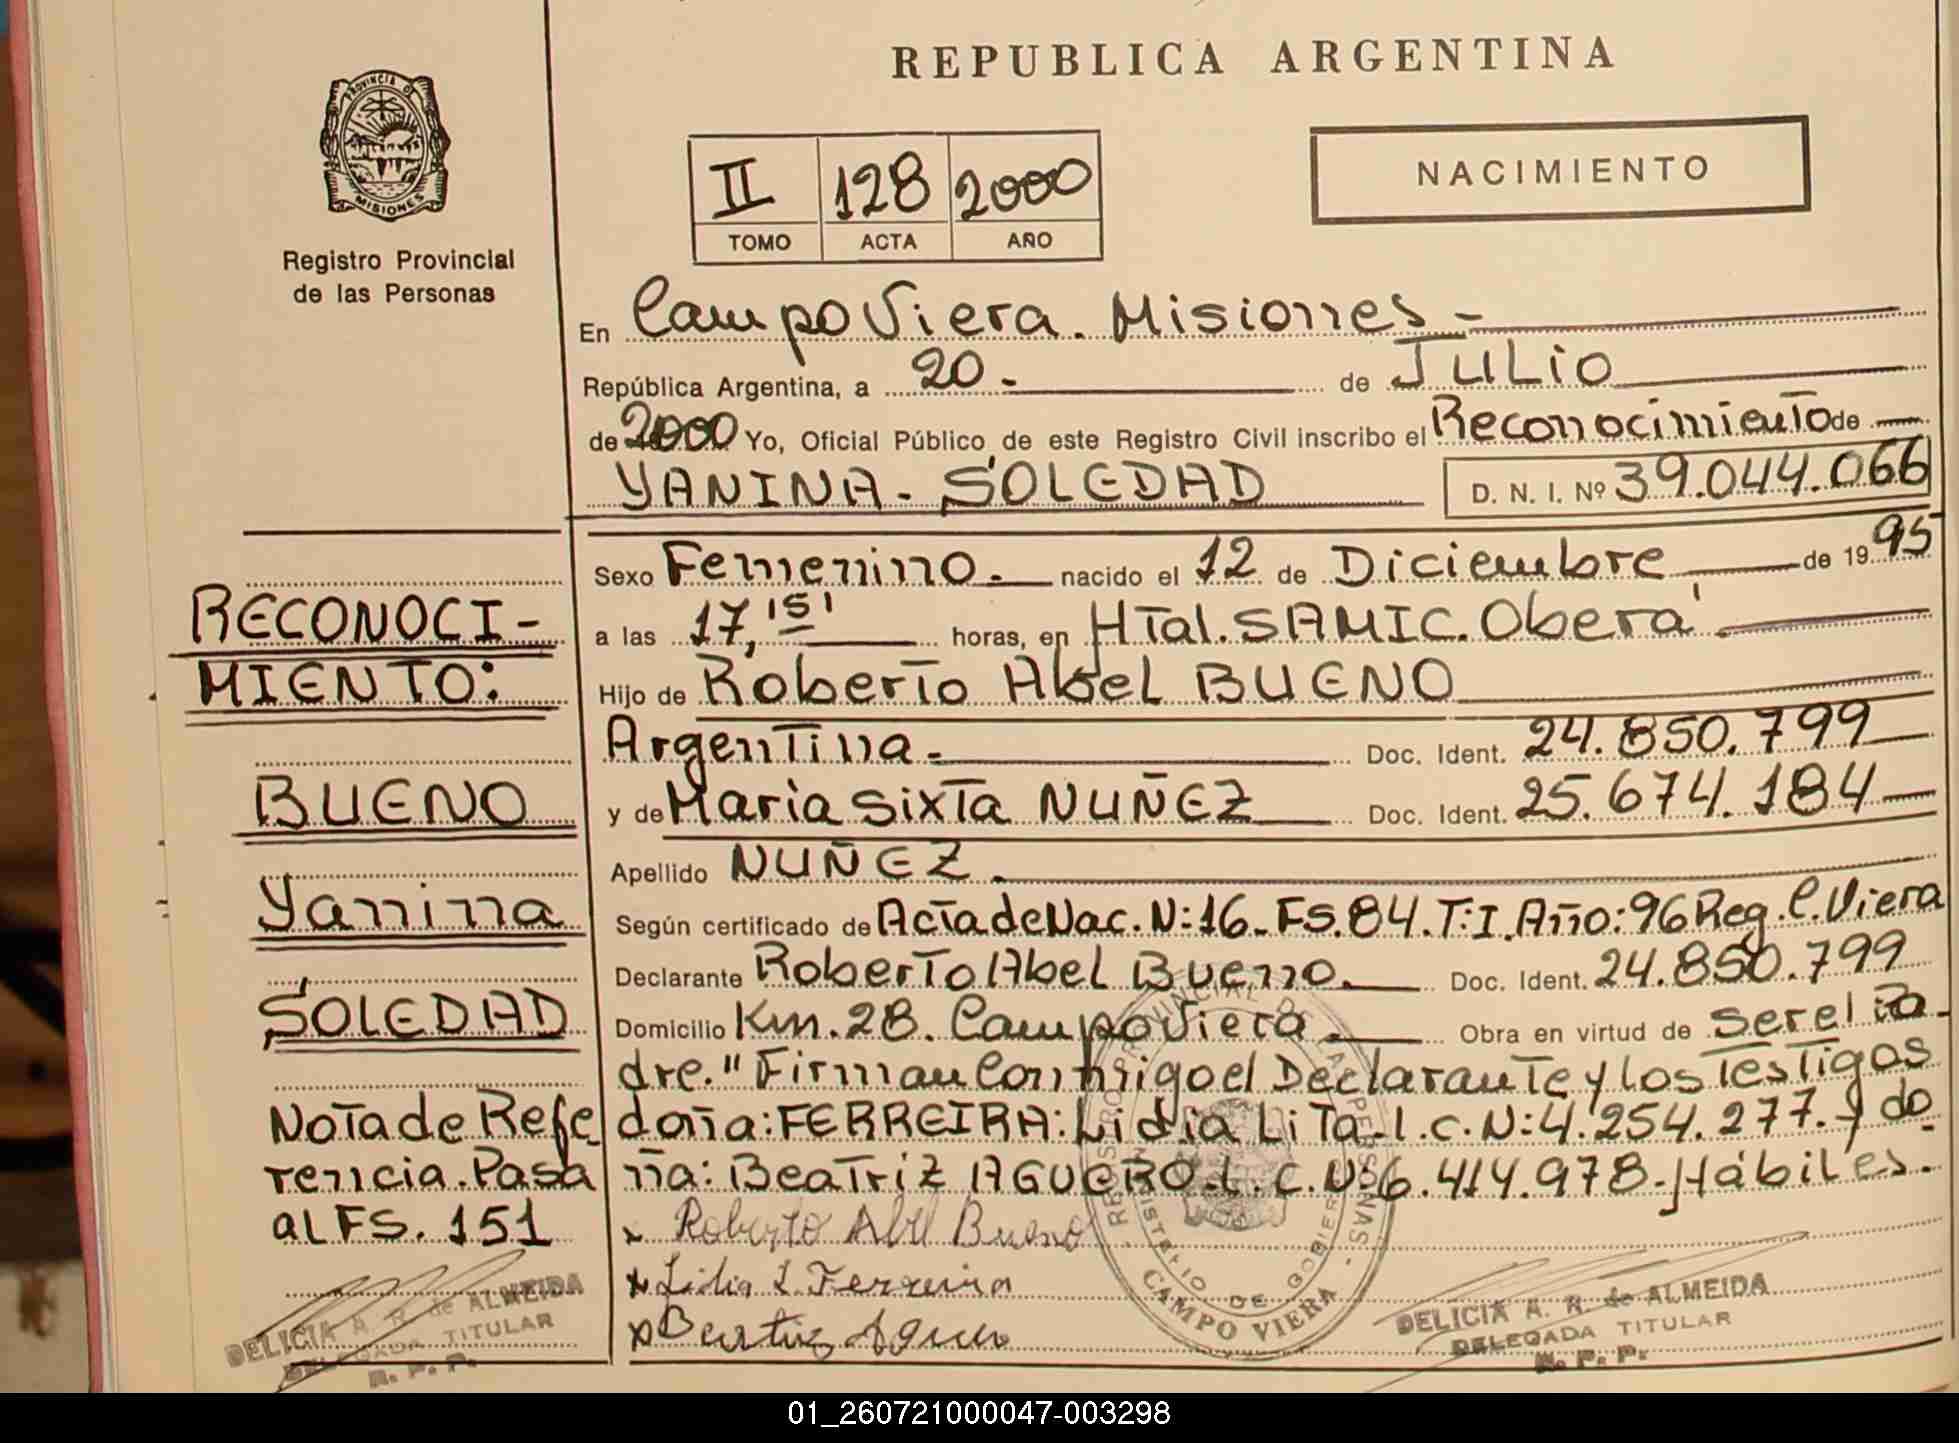 REPUBLICA ARGENTINA
PROVINCIA DE MISIONES
Registro Provincial
de las Personas
II 128 2000
TOMO ACTA AÑO
NACIMIENTO
En Campo Viera. Misiones -
República Argentina, a 20 - de JULIO
de 2000 Yo, Oficial Público de este Registro Civil inscribo el Reconocimiento de
YANINA - SOLEDAD D. N. I. Nº 39.044.066
Sexo Femenino. nacido el 12 de Diciembre de 1995
a las 17,15' horas, en HTal. SAMIC. Oberá.
Hijo de Roberto Abel BUENO
Argentina - Doc. Ident. 24.850.799
y de Maria Sixta NUÑEZ Doc. Ident. 25.674.184
Apellido NUÑEZ.
Según certificado de Acta de Nac. N:16. FS.84. T:I. Año:96 Reg. C. Viera
Declarante Roberto Abel Bueno. Doc. Ident. 24.850.799
Domicilio Km. 28. Campo Viera. Obra en virtud de ser el Pa-
dre." Firman Conmigo el Declarante y los Testigos
doña: FERREIRA: Lidia Lita. L.C.N:4.254.277. y do
ña: Beatriz AGUERO. L.C.N:6.414.978. Hábiles.
x Roberto Abel Bueno
x Lidia L Ferreira
x Beatriz Aguero
RECONOCI-
MIENTO:
BUENO
Yanina
SOLEDAD
Nota de Refe
rencia. Pasa
al FS. 151
DELICIA A. R. de ALMEIDA
DELEGADA TITULAR
R. P. P.
REGISTRO PROVINCIAL DE LAS PERSONAS
MINISTERIO DE GOBIERNO
CAMPO VIERA
DELICIA A. R. de ALMEIDA
DELEGADA TITULAR
R. P. P.
01_260721000047-003298